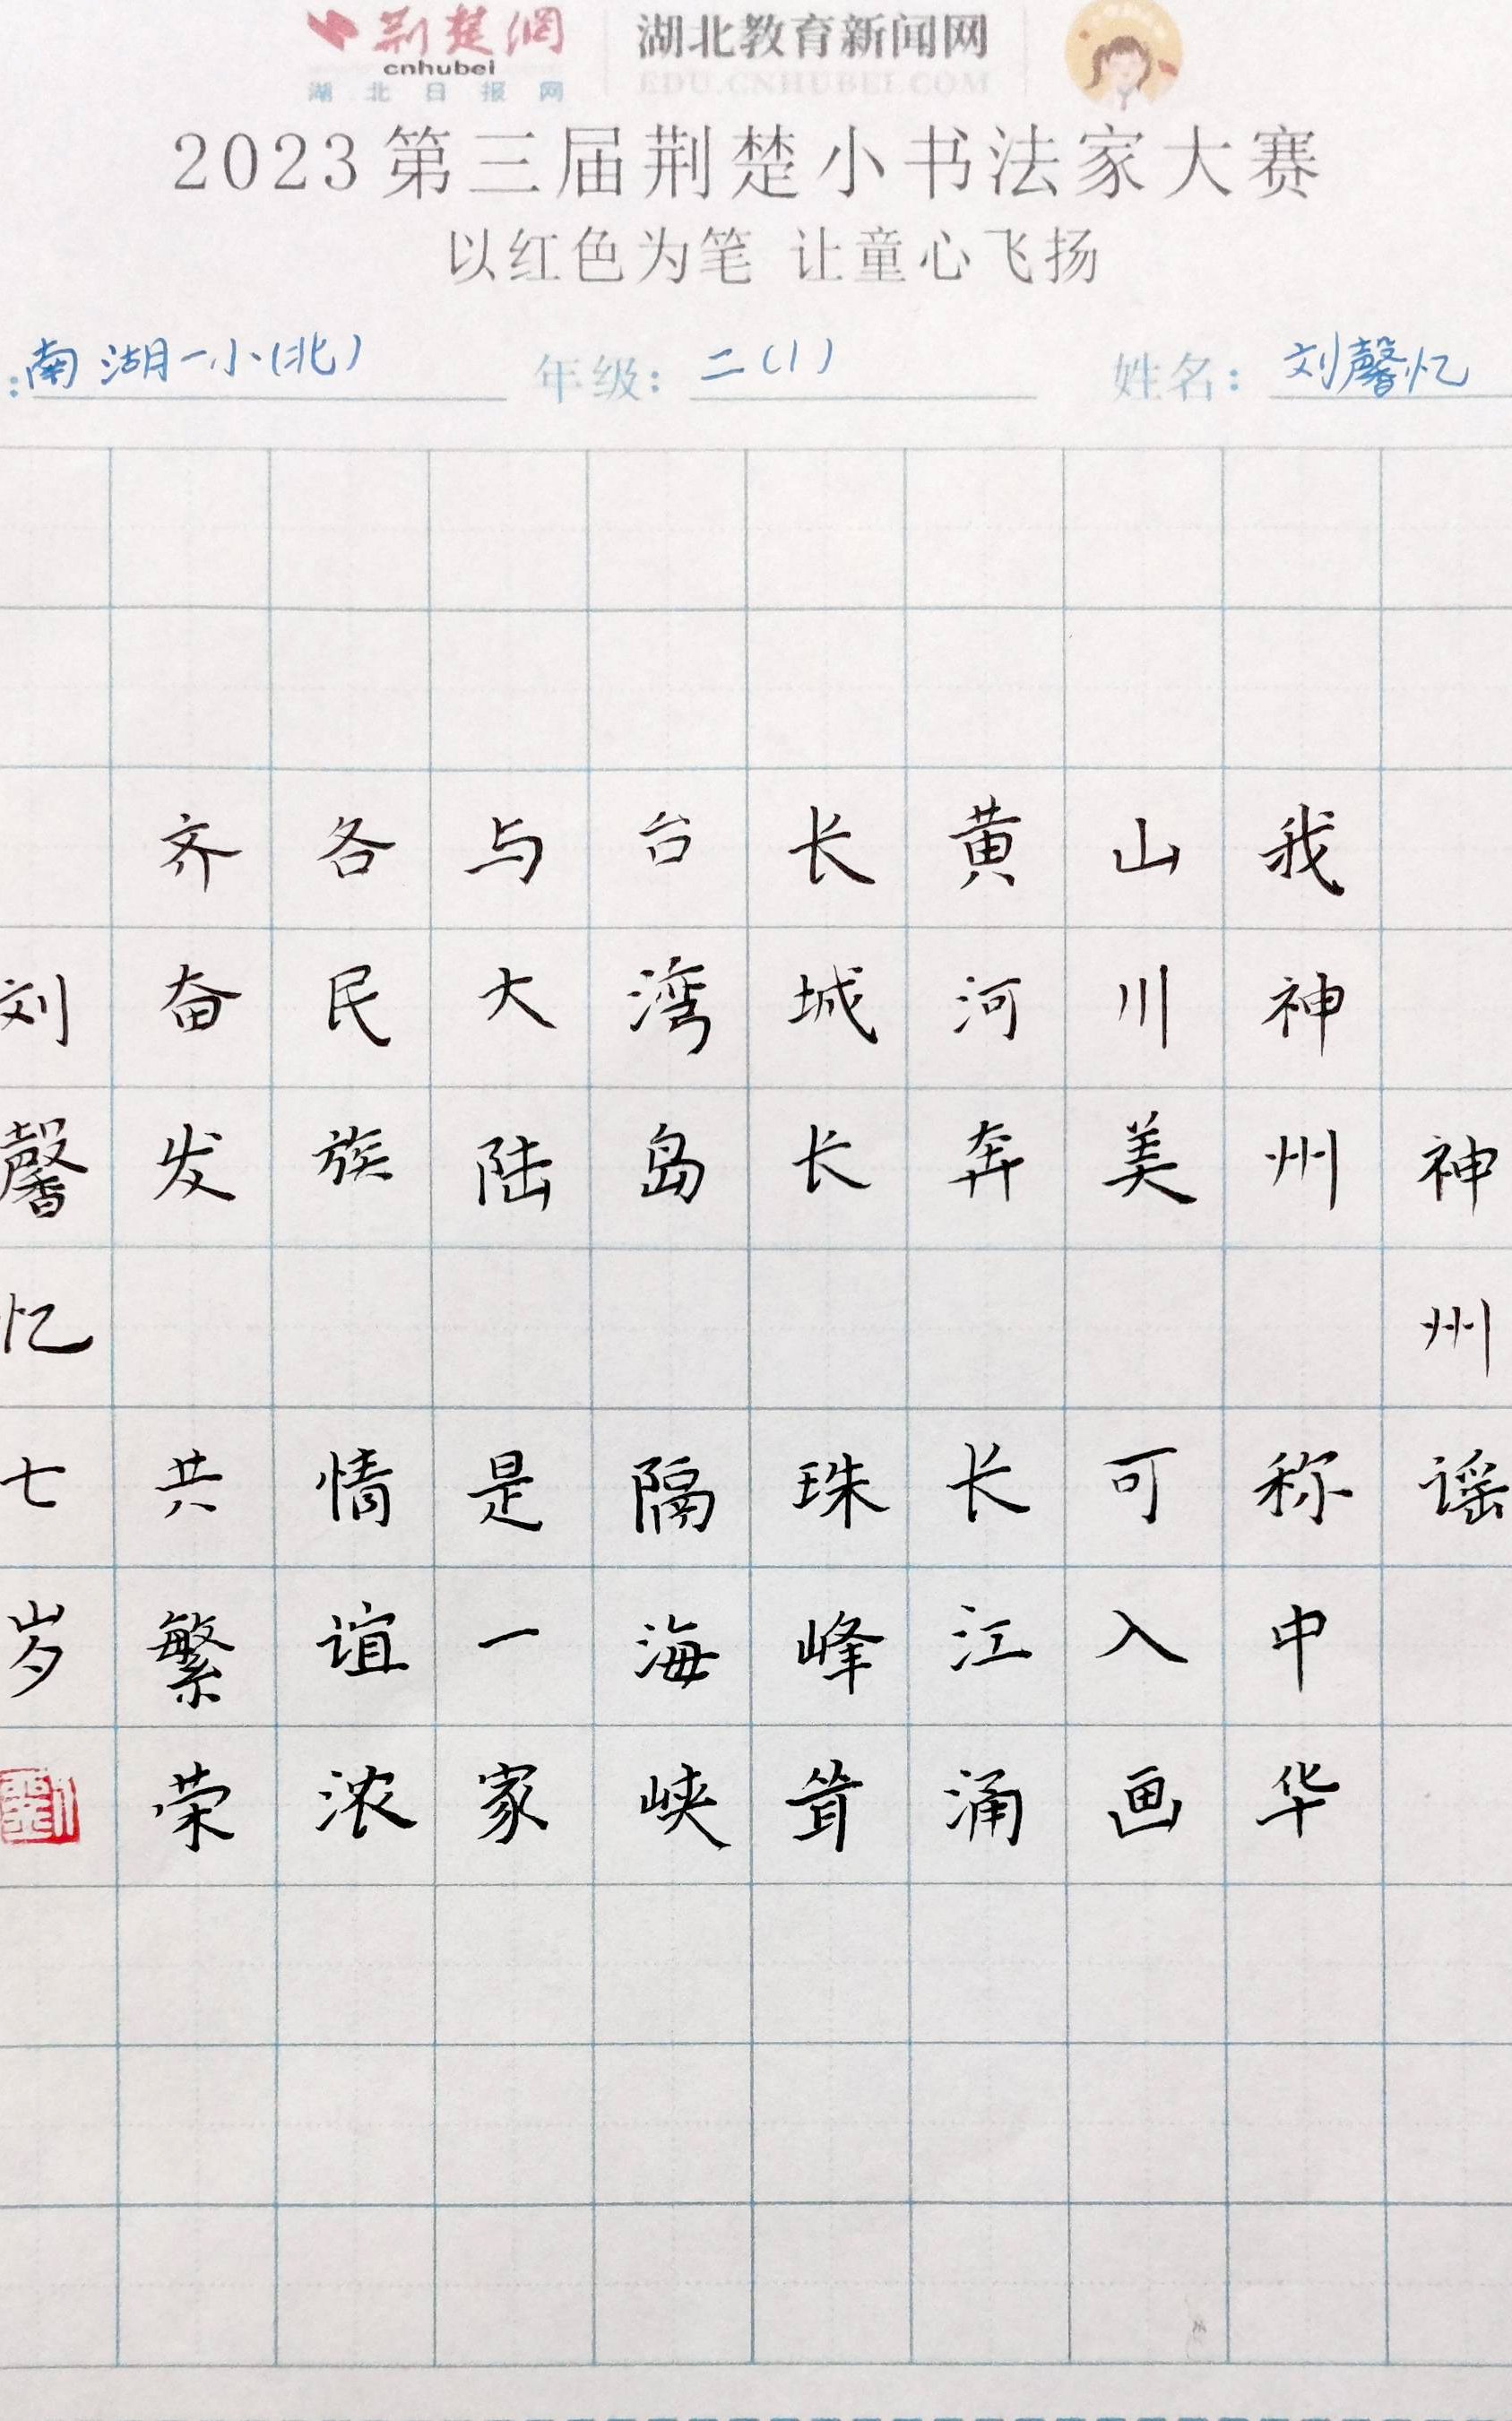 荆楚網 湖北教育新闻网
cnhubei EDU.CNHUBEI.COM
湖北日报网
2023第三届荆楚小书法家大赛
以红色为笔 让童心飞扬
:南湖一小(北) 年级:二(1) 姓名:刘馨忆
神州谣
我神州称中华
山川美可入画
黄河奔长江涌
长城长珠峰耸
台湾岛隔海峡
与大陆是一家
各民族情谊浓
齐奋发共繁荣
刘馨忆七岁